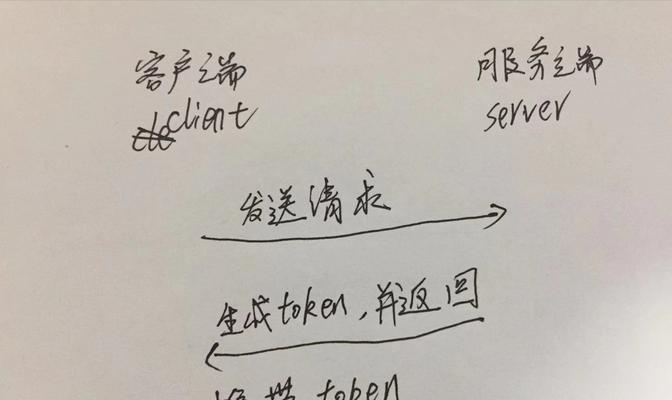 客户端
服务端
client
server
发送请求
生成token,并返回
token